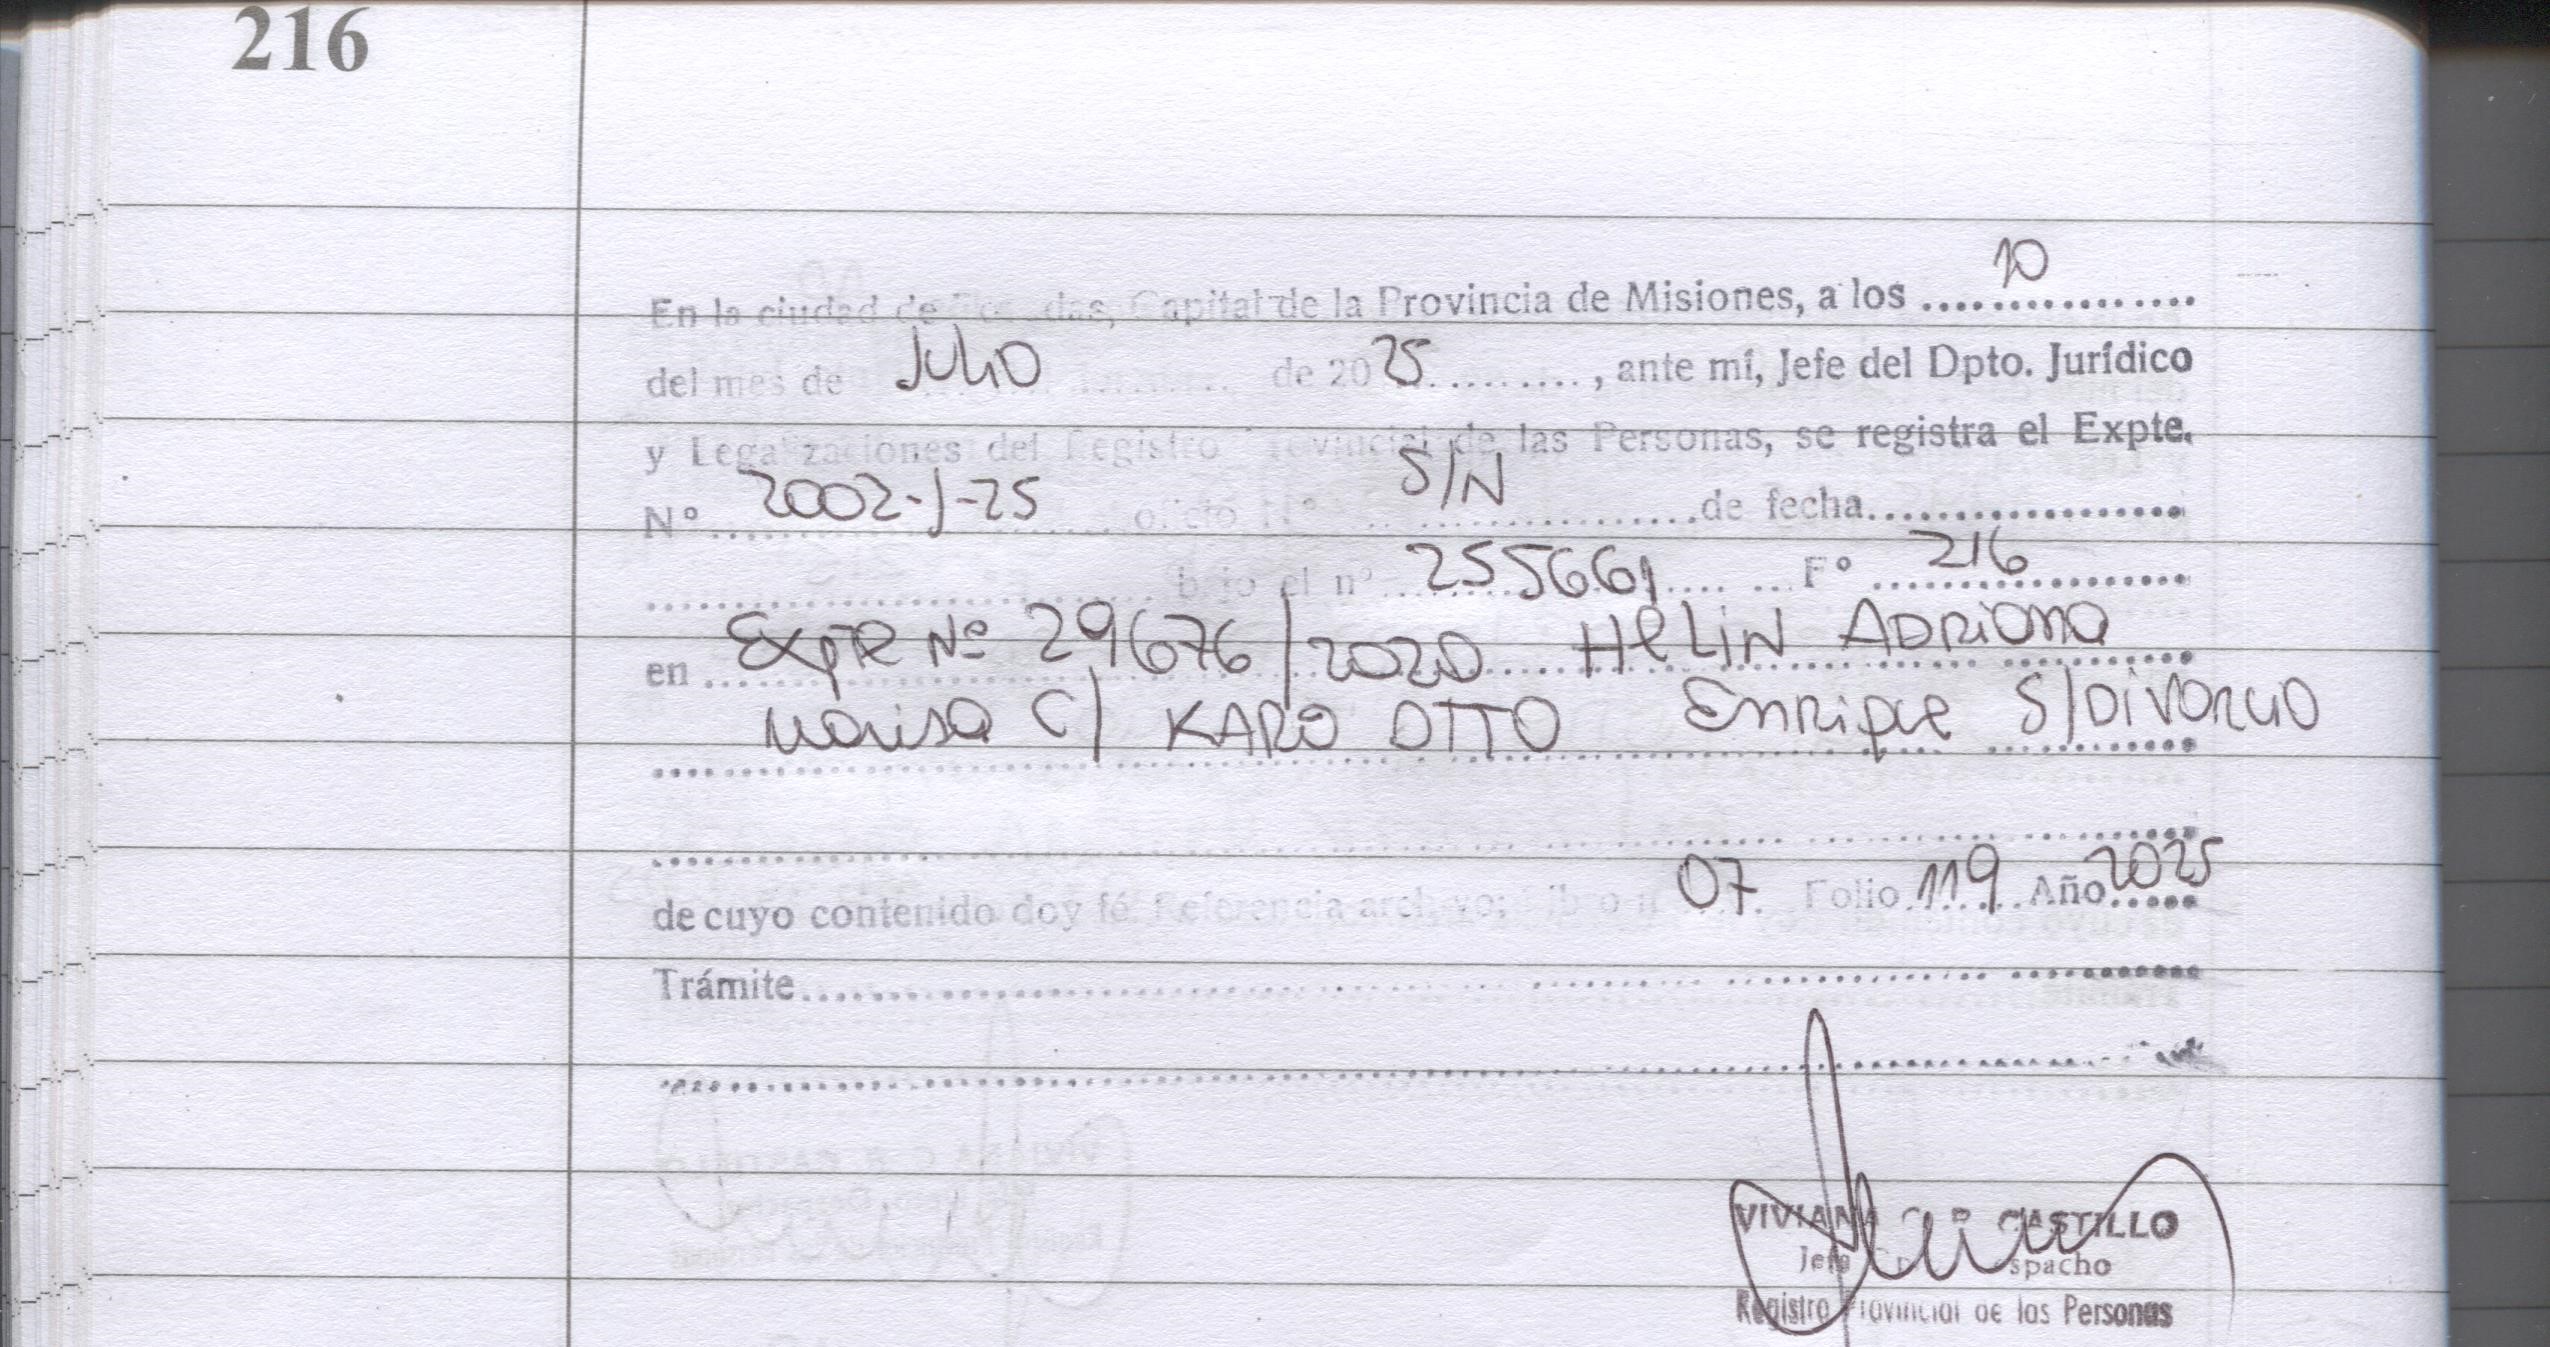 216
En la ciudad de Posadas, Capital de la Provincia de Misiones, a los ....10............
del mes de Julio de 2025 .........., ante mí, Jefe del Dpto. Jurídico
y Legalizaciones del Registro Provincial de las Personas, se registra el Expte.
Nº 2002-J-25 oficio Nº S/N de fecha..................
bajo el nº 255661 Fº 216
en Expte Nº 29676/2020 HeLiN ADRiana
Marisa C/ KARO OTTO Enrique S/DIVORCIO
de cuyo contenido doy fé. Referencia archivo: Libro nº 07 Folio 119 Año 2025
Trámite
VIVIANA C. R. CASTILLO
Jefe Dpto. Despacho
Registro Provincial de las Personas